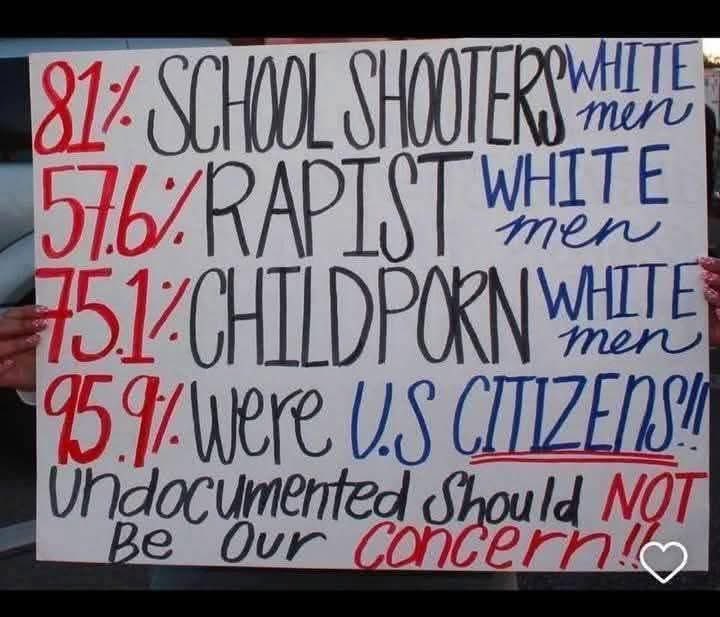 81% SCHOOL SHOOTERS WHITE men
57.6% RAPIST WHITE men
75.1% CHILD PORN WHITE men
95.9% Were U.S CITIZENS!!
Undocumented Should NOT
Be Our Concern!!